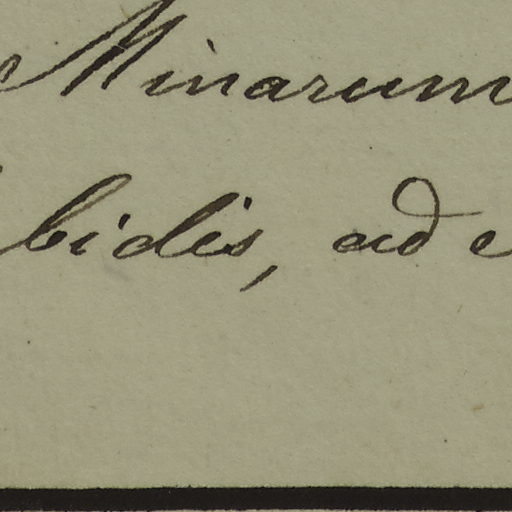 Minarum
bidis, ad